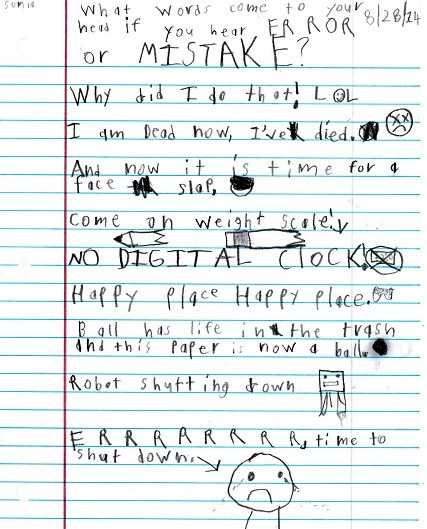 What words come to your
head if you hear ERROR 8/28/14
or MISTAKE?
Why did I do that! LOL
I am Dead now, I've died.
And now it is time for a
face slap.
Come on weight scale!
NO DIGITAL CLOCK!
Happy place Happy place.
Ball has life in the trash
and this paper is now a ball.
Robot shutting down
ERRRRRRRR, time to
shut down.